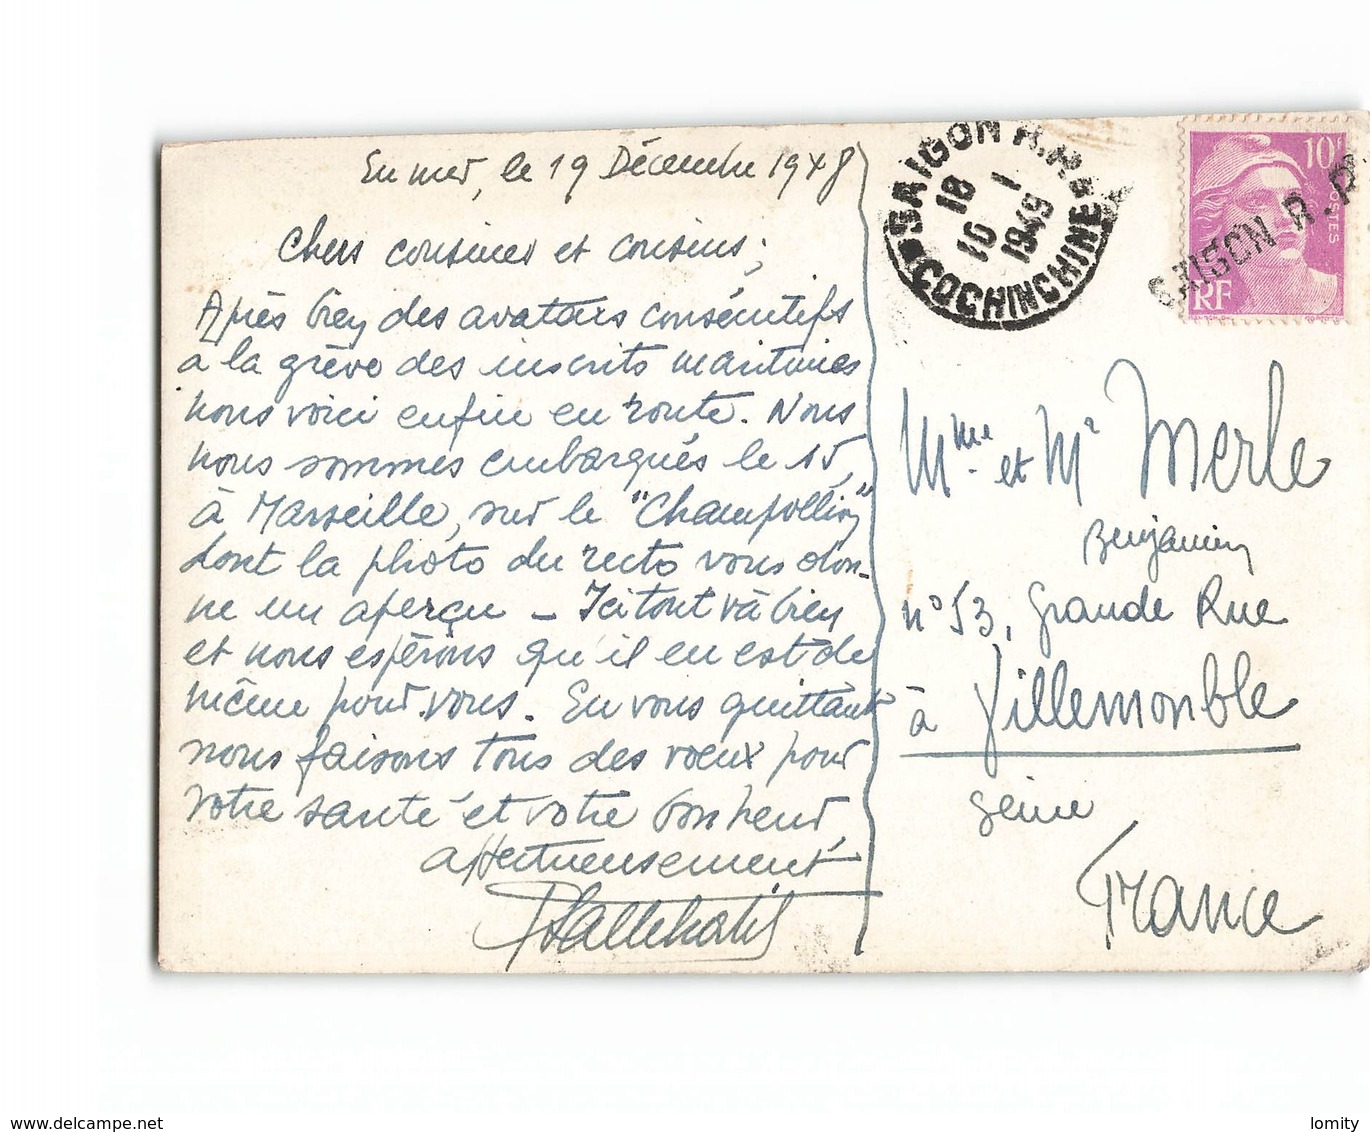 En mer, le 19 Décembre 1948
Chers cousines et cousins,
Après bien des avatars consécutifs
a la grève des inscrits maritimes
nous voici enfin en route. Nous
nous sommes embarqués le 15,
à Marseille, sur le "Champollion"
dont la photo du recto vous don-
ne un aperçu – Ici tout va bien
et nous espérons qu'il en est de
même pour vous. En vous quittant
nous faisons tous des vœux pour
votre santé et votre bonheur,
affectueusement
SAIGON R.P.
18
16 1
1949
COCHINCHINE
10F
POSTES
RF
SAIGON R.P.
Mme et Mr Merle
Benjamin
n° 53, Grande Rue
à Villemomble
Seine
France
www.delcampe.net
lomity